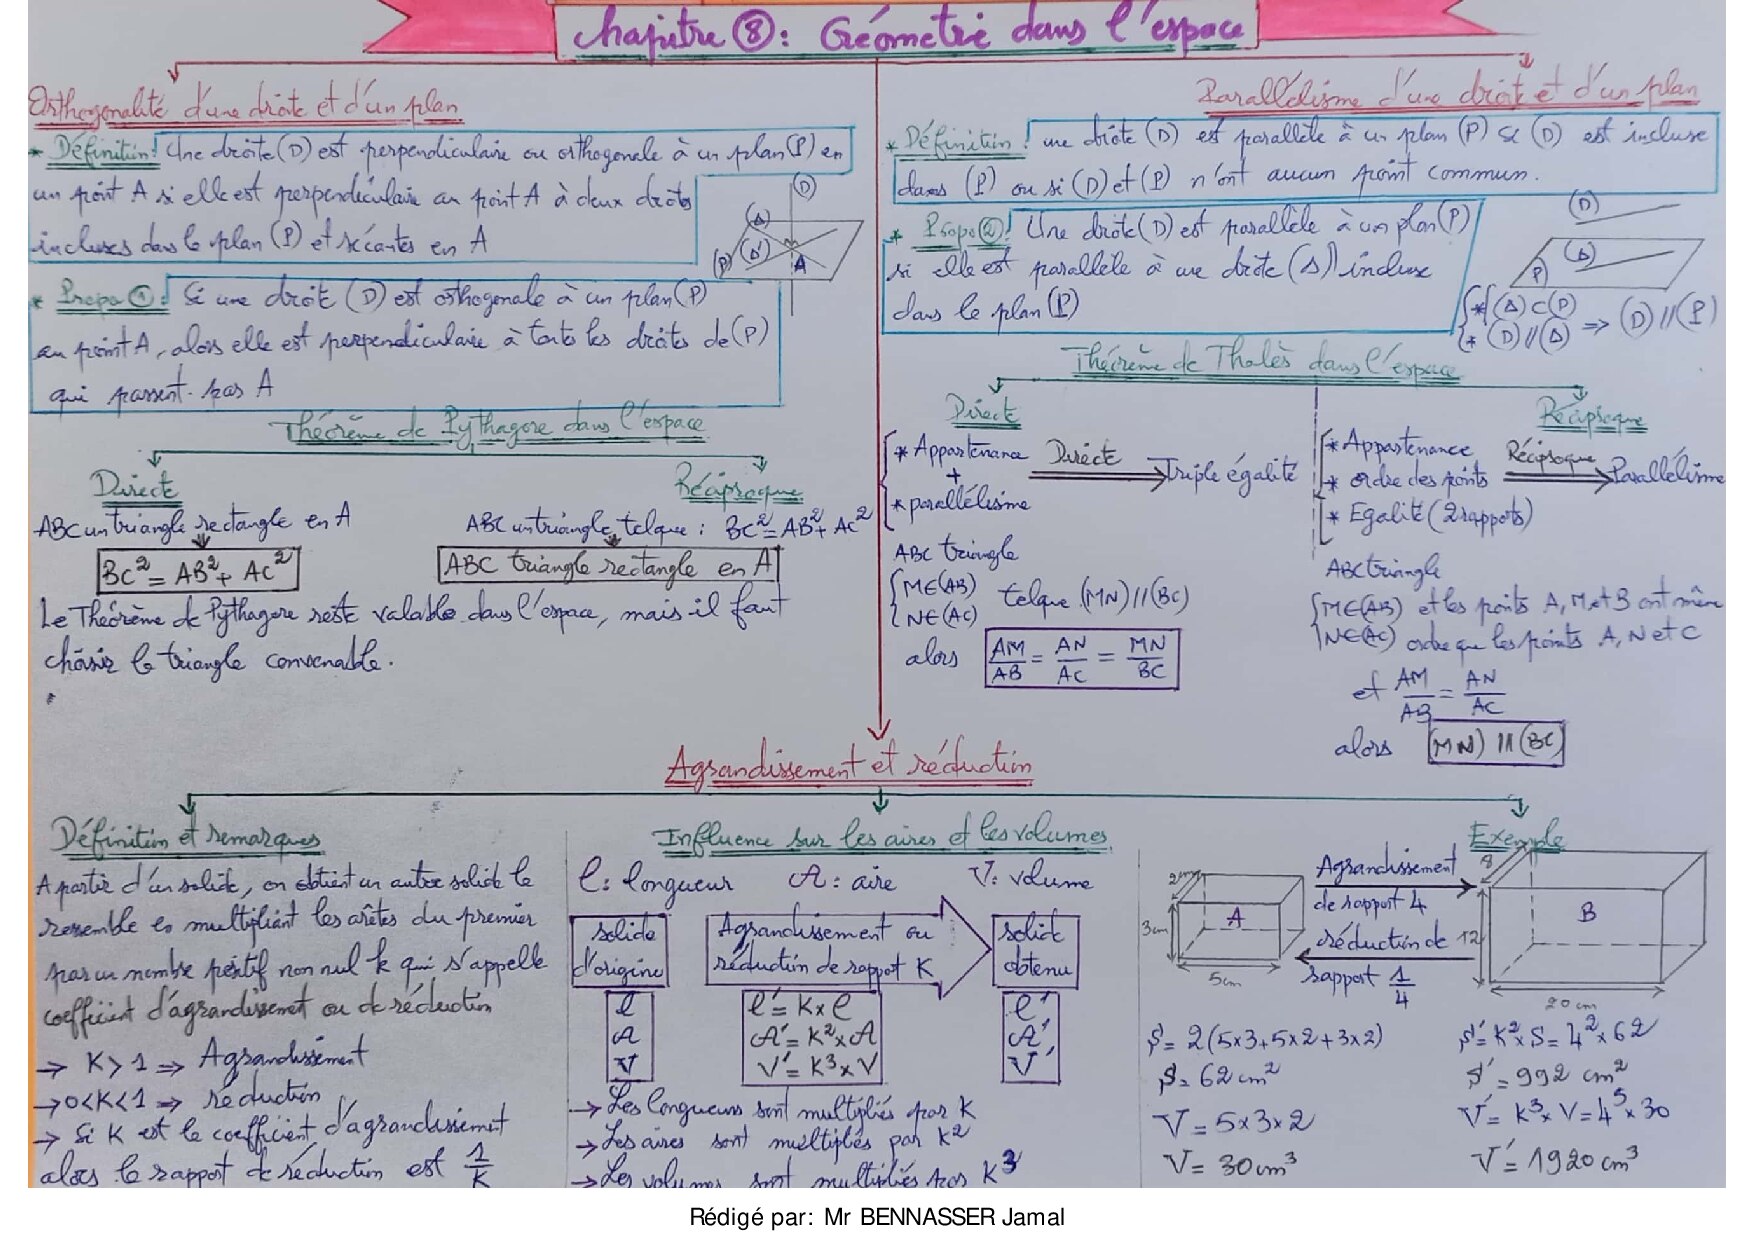 Chapitre ⑧: Géométrie dans l'espace
Orthogonalité d'une droite et d'un plan
* Définition: Une droite (D) est perpendiculaire ou orthogonale à un plan (P) en
un point A si elle est perpendiculaire au point A à deux droites
incluses dans le plan (P) et sécantes en A
(D)
(Δ)
(Δ')
(P)
A
* Propo ①: Si une droite (D) est orthogonale à un plan (P)
au point A, alors elle est perpendiculaire à toutes les droites de (P)
qui passent par A
Théorème de Pythagore dans l'espace
Directe
ABC un triangle rectangle en A
BC² = AB² + AC²
Réciproque
ABC un triangle tel que : BC² = AB² + AC²
ABC triangle rectangle en A
Le Théorème de Pythagore reste valable dans l'espace, mais il faut
choisir le triangle convenable.
Parallélisme d'une droite et d'un plan
* Définition : une droite (D) est parallèle à un plan (P) si (D) est incluse
dans (P) ou si (D) et (P) n'ont aucun point commun.
* Propo ②: Une droite (D) est parallèle à un plan (P)
si elle est parallèle à une droite (Δ) incluse
dans le plan (P)
(D)
(Δ)
P)
* (Δ) ⊂ (P)
* (D) // (Δ) => (D) // (P)
Théorème de Thalès dans l'espace
Directe
* Appartenance
+
* parallélisme
Directe
Triple égalité
ABC triangle
M∈(AB)
N∈(AC)
tel que (MN) // (BC)
alors AM/AB = AN/AC = MN/BC
Réciproque
* Appartenance
* ordre des points
* Egalité (2 rapports)
Réciproque
Parallélisme
ABC triangle
M∈(AB) et les points A, M et B ont même
N∈(AC) ordre que les points A, N et C
et AM/AB = AN/AC
alors (MN) // (BC)
Agrandissement et réduction
Définition et remarques
A partir d'un solide, on obtient un autre solide le
ressemble en multipliant les arêtes du premier
par un nombre positif non nul k qui s'appelle
coefficient d'agrandissement ou de réduction
→ K > 1 => Agrandissement
→ 0<K<1 => réduction
→ Si K est le coefficient d'agrandissement
alors le rapport de réduction est 1/K
Influence sur les aires et les volumes
l: longueur A: aire V: volume
solide
d'origine
Agrandissement ou
réduction de rapport K
solide
obtenu
l
A
V
l' = K×l
A' = K²×A
V' = K³×V
l'
A'
V'
→ Les longueurs sont multipliés par K
→ Les aires sont multipliés par K²
→ Les volumes sont multipliés par K³
Exemple
2cm
3cm
A
5cm
Agrandissement
de rapport 4
réduction de
rapport 1/4
8
12
B
20 cm
S = 2(5×3+5×2+3×2)
S = 62 cm²
V = 5×3×2
V = 30 cm³
S' = K²×S = 4²×62
S' = 992 cm²
V' = K³×V = 4³×30
V' = 1920 cm³
Rédigé par: Mr BENNASSER Jamal